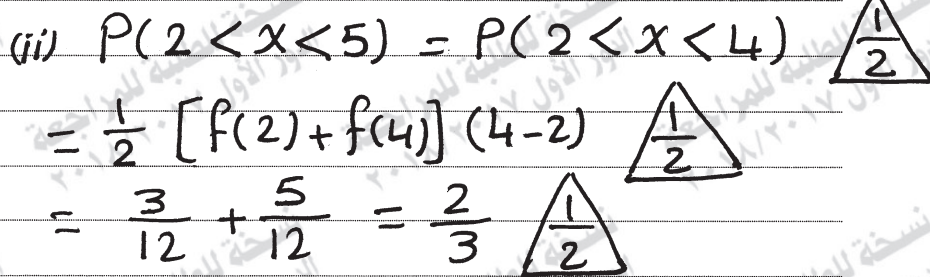 (ii) P(2 < x < 5) = P(2 < x < 4) 1/2
= 1/2 [f(2) + f(4)] (4-2) 1/2
= 3/12 + 5/12 = 2/3 1/2